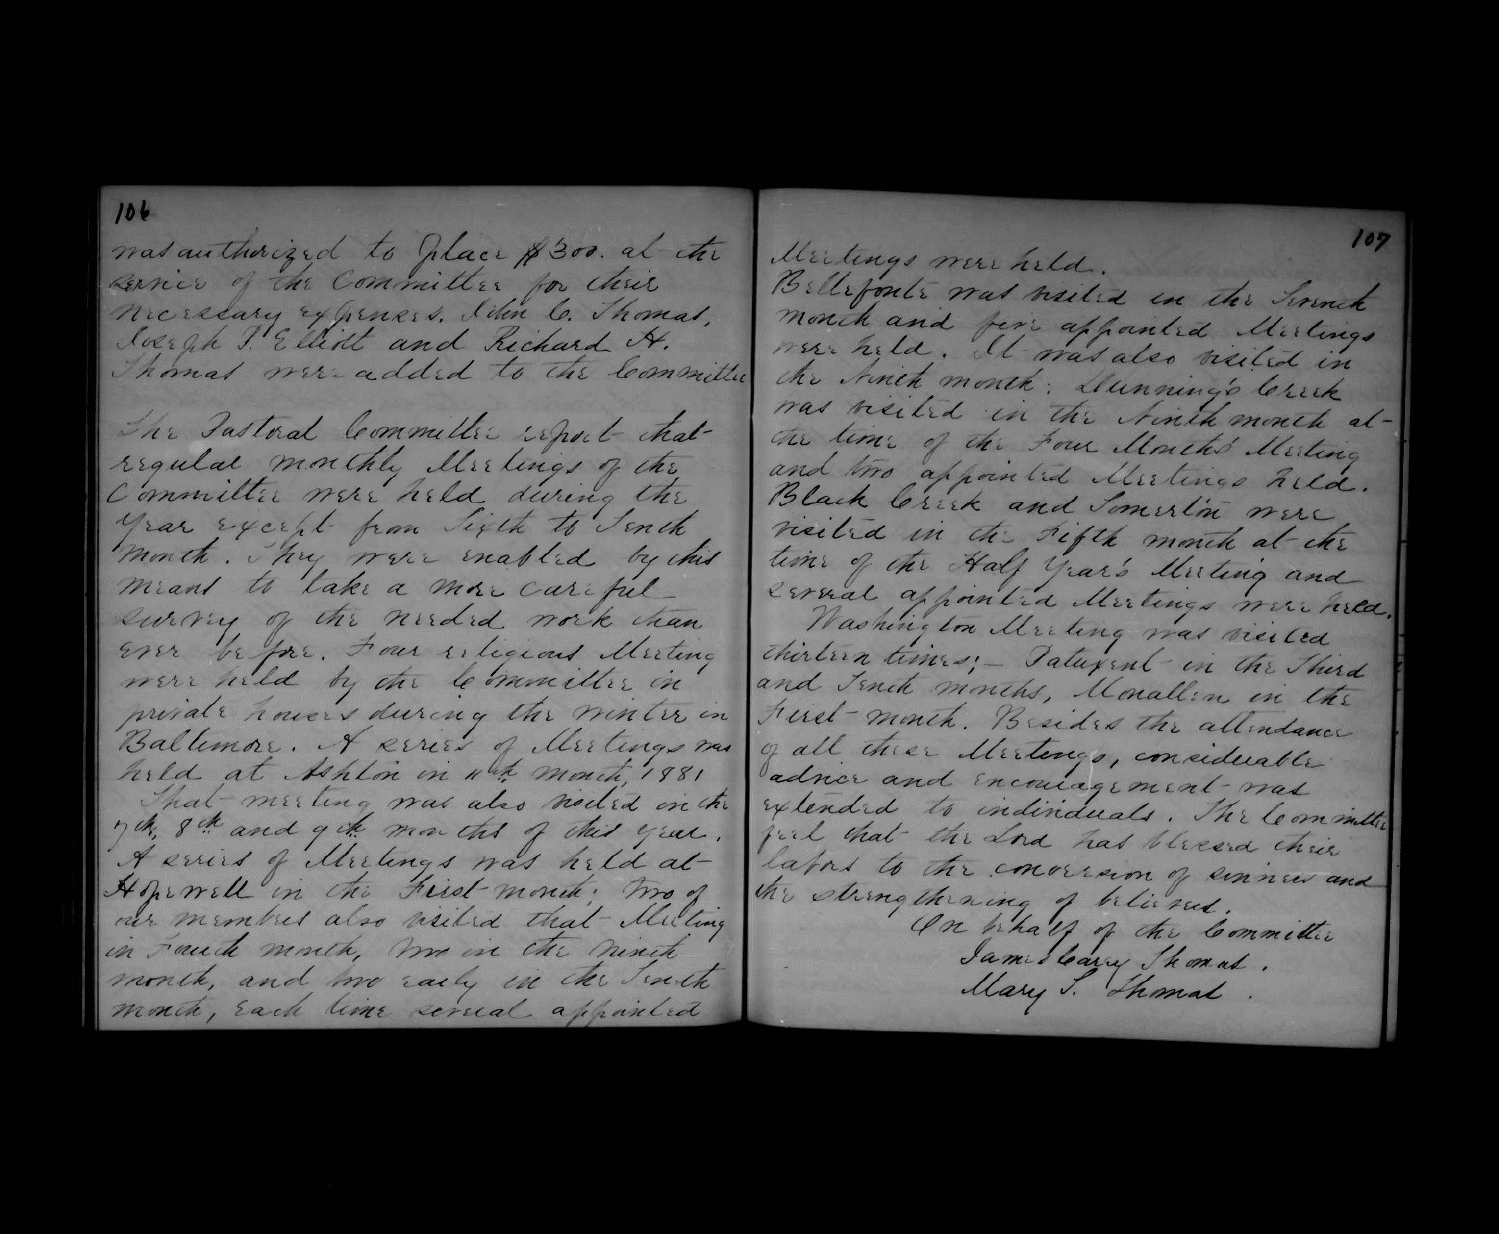 106
was authorized to place $300. at the
service of the Committee for their
necessary expenses. John C. Thomas,
Joseph P. Elliott and Richard H.
Thomas were added to the Committee
The Pastoral Committee report that
regular monthly Meetings of the
Committee were held during the
Year except from Sixth to Tenth
month. They were enabled by this
means to take a more careful
survey of the needed work than
ever before. Four religious Meeting
were held by the Committee in
private houses during the winter in
Baltimore. A series of Meetings was
held at Ashton in 11th month, 1881
That meeting was also visited in the
7th, 8th and 9th months of this year.
A series of Meetings was held at
Hopewell in the First month; two of
our members also visited that Meeting
in Fourth month, two in the Ninth
month, and two early in the Tenth
month, each time several appointed
107
Meetings were held.
Bellefonte was visited in the Seventh
month and five appointed Meetings
were held. It was also visited in
the Ninth month; Dunning's Creek
was visited in the Ninth month at
the time of the Four Months' Meeting
and two appointed Meetings held.
Black Creek and Somerton were
visited in the Fifth month at the
time of the Half Year's Meeting and
several appointed Meetings were held.
Washington Meeting was visited
thirteen times; – Patuxent in the Third
and Tenth months, Monallen in the
First month. Besides the attendance
of all these Meetings, considerable
advice and encouragement was
extended to individuals. The Committee
feel that the Lord has blessed their
labors to the conversion of sinners and
the strengthening of believers.
On behalf of the Committee
James Carey Thomas.
Mary S. Thomas.